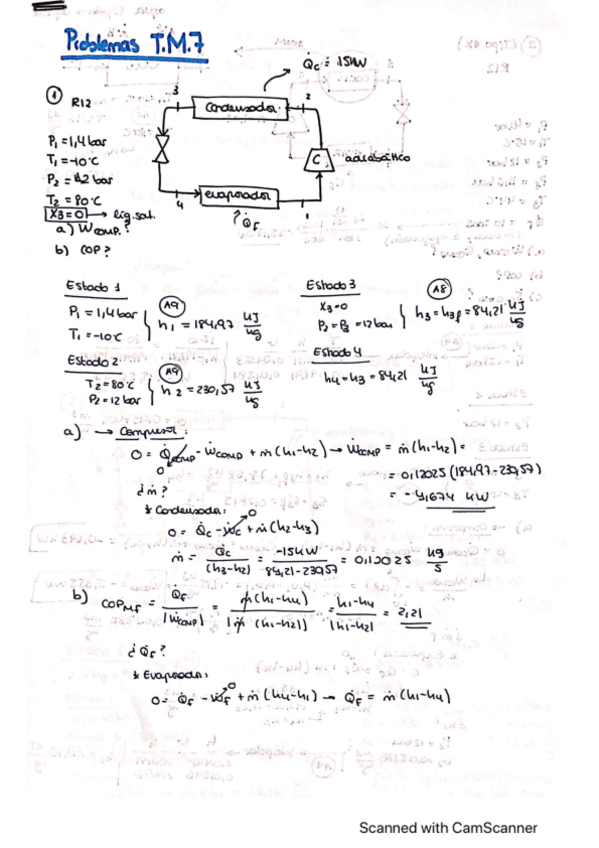 Problemas T.M.7
① R12
Q̇c = 15kW
3
Condensador
2
P1 = 1,4 bar
T1 = -10°C
P2 = 12 bar
T2 = 80°C
X3=0 → liq. sat.
a) Ẇcomp.?
b) COP?
C
adiabático
4
evaporador
1
? Q̇F
Estado 1
P1 = 1,4 bar
T1 = -10°C
A9
h1 = 184,97 kJ/kg
Estado 2
T2 = 80°C
P2 = 12 bar
A9
h2 = 230,57 kJ/kg
Estado 3
X3=0
P2 = P3 = 12 bar
A8
h3 = h3f = 84,21 kJ/kg
Estado 4
h4 = h3 = 84,21 kJ/kg
a) → Compresor:
0 = Q̇comp - Ẇcomp + ṁ(h1-h2) → Ẇcomp = ṁ(h1-h2) =
0
= 0,12025 (184,97-230,57)
¿ṁ?
= -4,674 kW
* Condensador:
0
0 = Q̇c - Ẇc + ṁ(h2-h3)
ṁ = Q̇c/(h3-h2) = -15kW/84,21-230,57 = 0,12025 kg/s
b) COPMF = Q̇F/|Ẇcomp| = ṁ(h1-h4)/|ṁ(h1-h2)| = h1-h4/|h1-h2| = 2,21
¿Q̇F?
* Evaporador:
0
0 = Q̇F - ẆF + ṁ(h4-h1) → Q̇F = ṁ(h1-h4)
Scanned with CamScanner